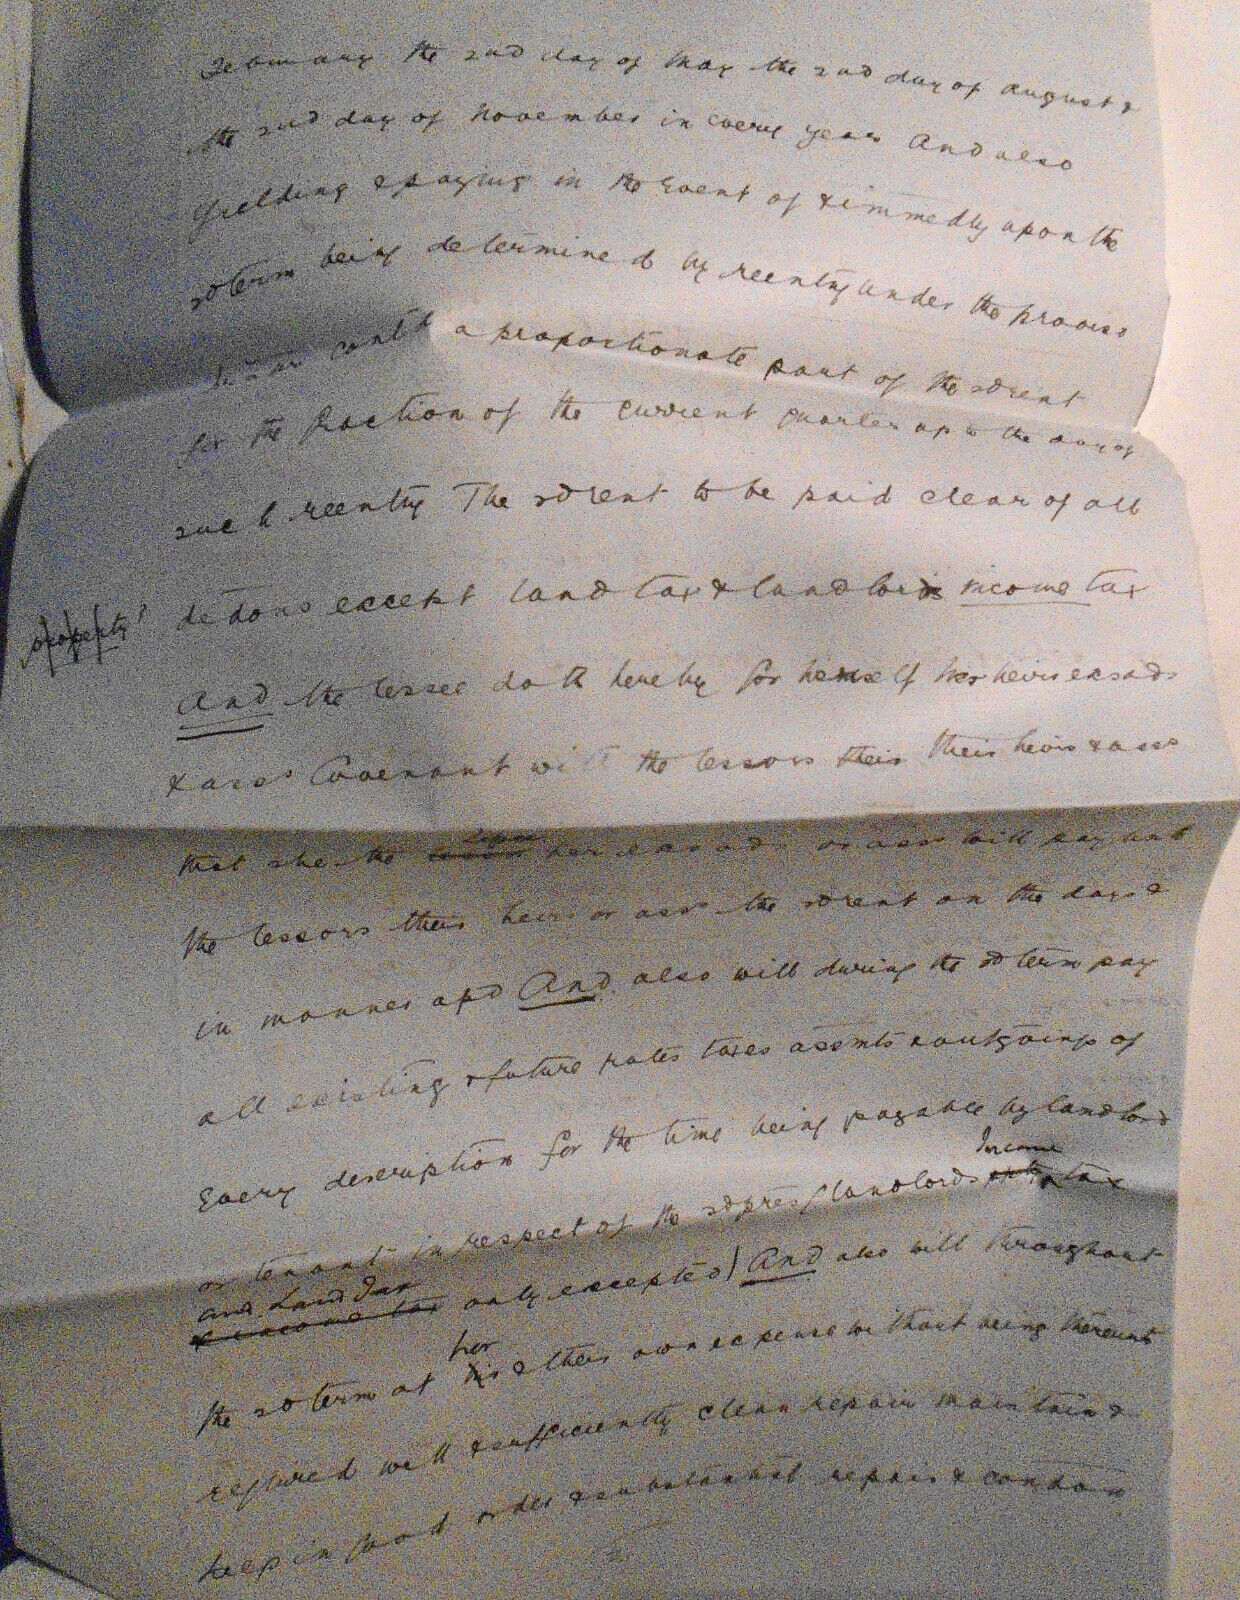 February the 2nd day of May the 2nd day of August &
the 2nd day of November in every year And also
yielding & paying in the Event of & immedly upon the
sd term being determined by reentry under the proviso
in contd a proportionate part of the sd rent
for the fraction of the current quarter up to the day of
such reentry The sd rent to be paid clear of all
dedons except land tax & landlords income tax
property
And the lessee doth hereby for himself his heirs exs ads
& asss Covenant with the lessors their heirs & asss
that she the lessee her exs ads or asss will pay unto
the lessors their heirs or asss the sd rent on the days &
in manner afd And also will during the sd term pay
all existing & future rates taxes assmts & outgoings of
every description for the time being payable by landlord
Income
or tenant in respect of the sd pres (landlords tax
and Land Tax
& income tax only excepted) And also will throughout
her
the sd term at his & their own expense without being thereunto
required well & sufficiently clean repair maintain &
keep in good order & substantial repair & condon